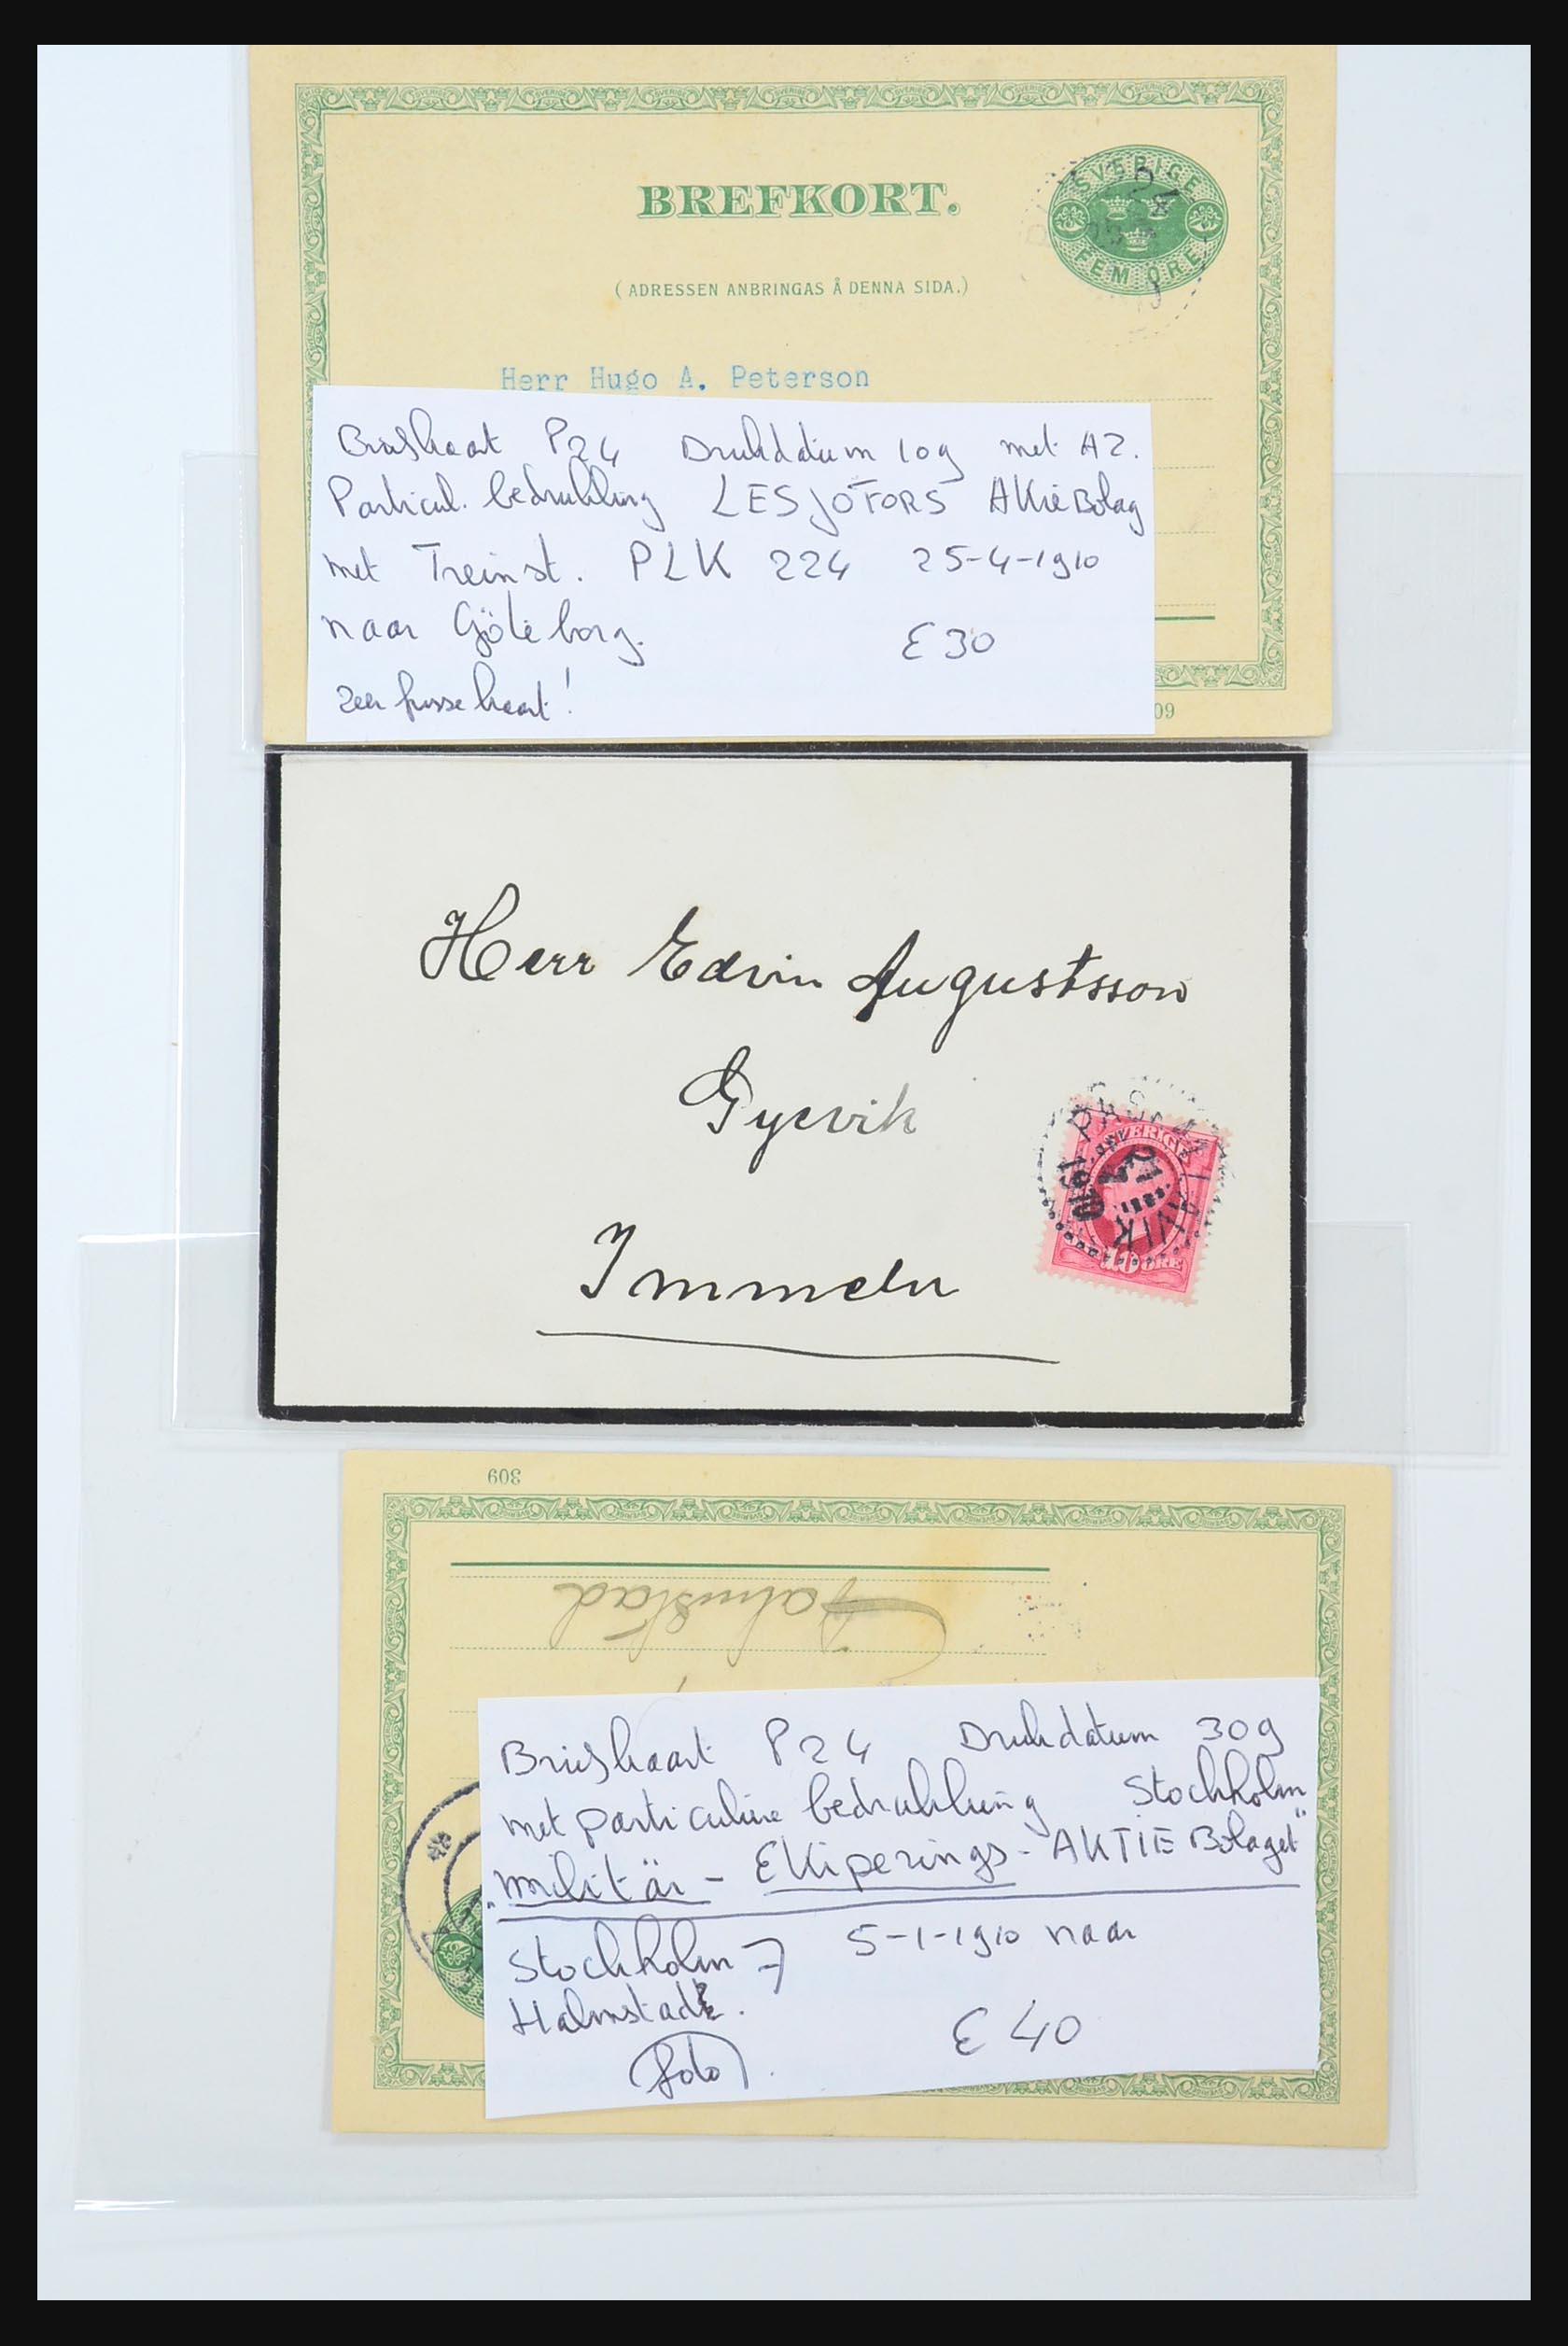 BREFKORT.
SVERIGE
FEM ÖRE
(ADRESSEN ANBRINGAS Å DENNA SIDA.)
Herr Hugo A. Peterson
Briefkaart P24 Drukdatum 109 met AZ.
Particul. bedrukking LESJÖFORS AKtieBolag
met Treinst. PLK 224 25-4-1910
naar Göteborg.
€ 30
Zeer frisse kaart!
09
Herr Edvin Augustsson
Gyevik
Immeln
SVERIGE
10 ÖRE
1910
VIK
309
Halmstad
Briefkaart P24 Drukdatum 309
met particuliere bedrukking Stockholm
"Militär - EKiperings - AKTIE Bolaget"
Stockholm 7 5-1-1910 naar
Halmstad.
€ 40
foto